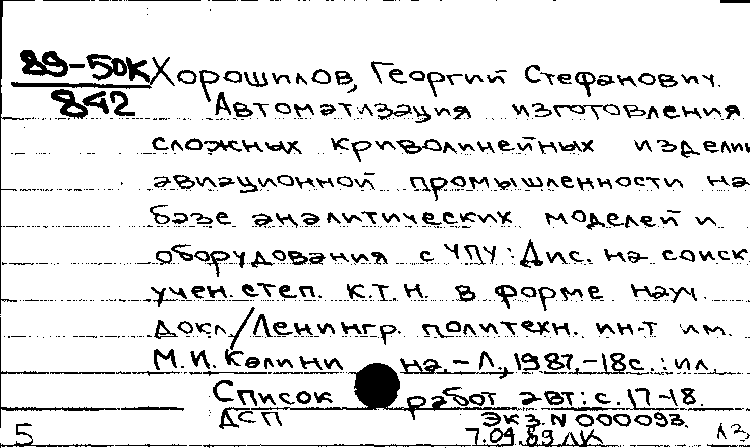 89-50К Хорошилов, Георгий Стефанович.
842 Автоматизация изготовления
сложных криволинейных изделий
авиационной промышленности на
базе аналитических моделей и
оборудования с ЧПУ: Дис. на соиск.
учен. степ. к.т.н. в форме науч.
докл./Ленингр. политехн. ин-т им.
М.И. Калинина. – Л., 1987. – 18с.: ил.
Список работ авт: с. 17-18.
ДСП Экз N 000093
5 7.04.89 ЛК